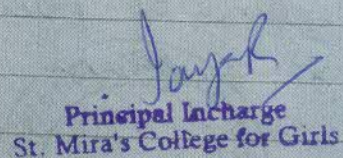 Principal Incharge
St. Mira's College for Girls